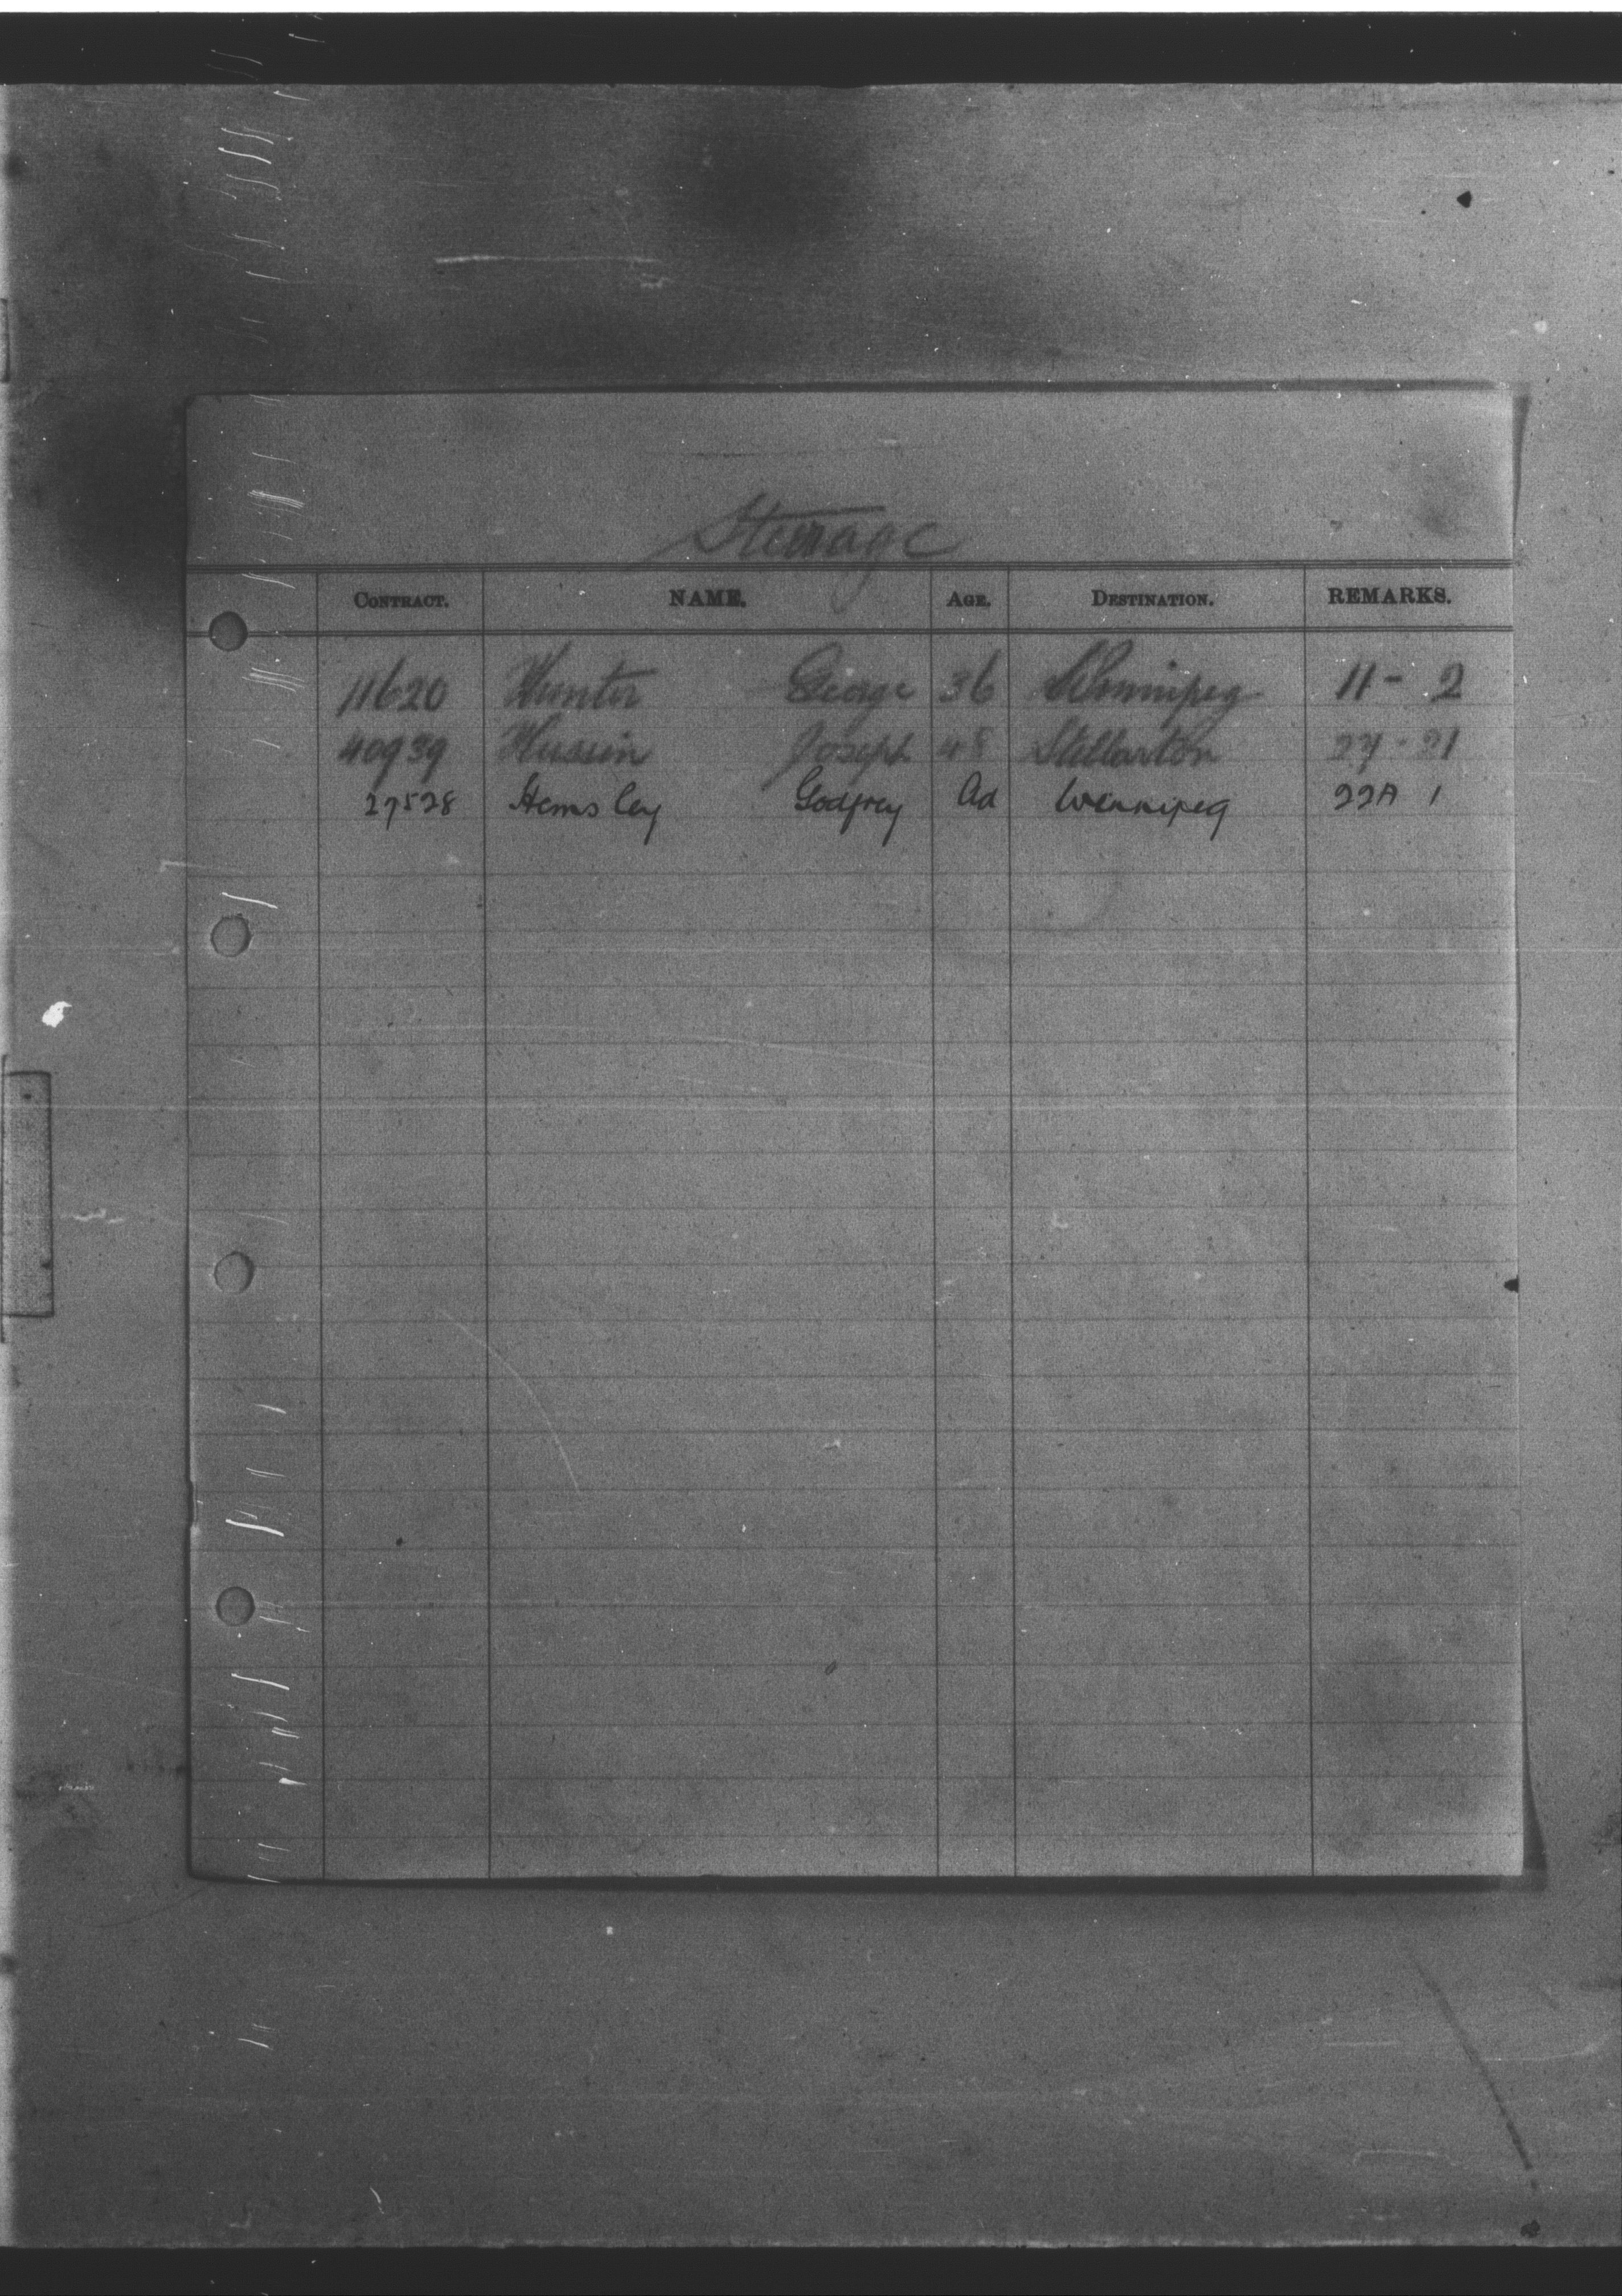 Steerage
CONTRACT. NAME. AGE. DESTINATION. REMARKS.
11620 Hunter George 36 Winnipeg 11 - 2
40939 Hussein Joseph 48 Stellarton 27 - 21
27528 Hemsley Godfrey Ad Winnipeg 22A 1